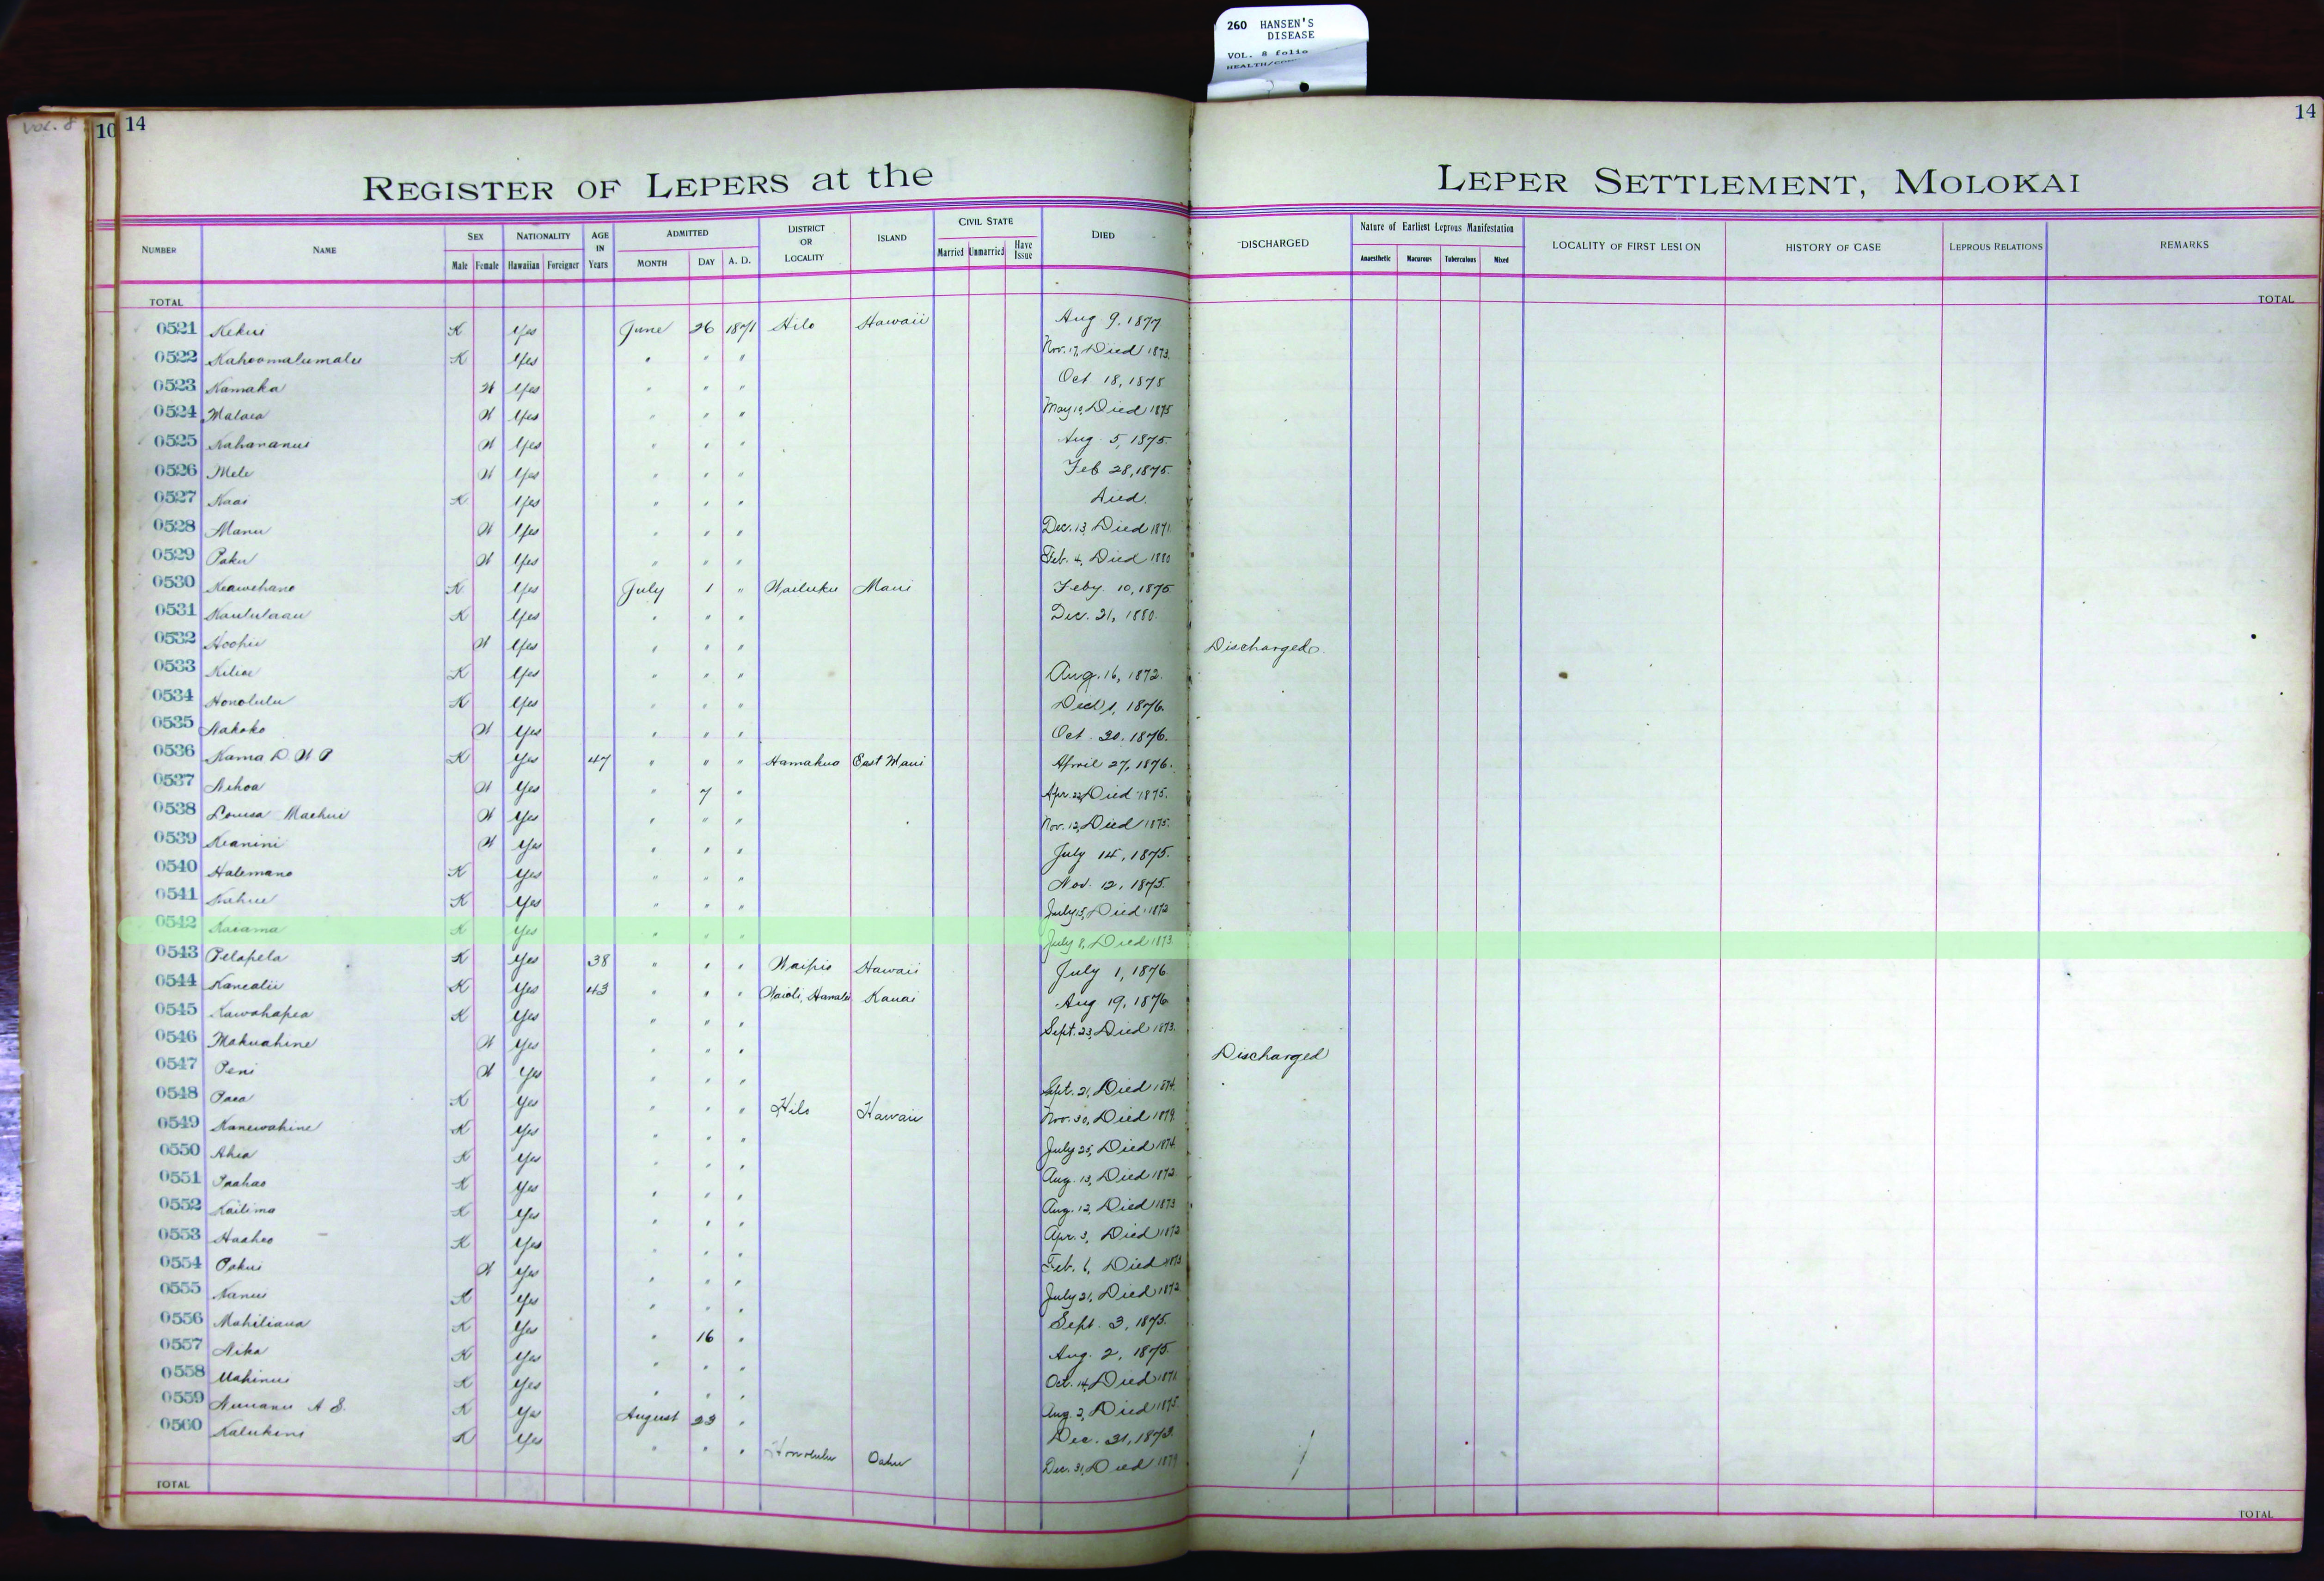 260 HANSEN'S
DISEASE
VOL. 8 folio
VOL. 8
10 14
14
REGISTER OF LEPERS at the LEPER SETTLEMENT, MOLOKAI
NUMBER NAME SEX Male Female NATIONALITY Hawaiian Foreigner AGE IN Years ADMITTED MONTH DAY A. D. DISTRICT OR LOCALITY ISLAND CIVIL STATE Married Unmarried Have Issue DIED DISCHARGED Nature of Earliest Leprous Manifestation Anaesthetic Macurous Tuberculous Mixed LOCALITY OF FIRST LESION HISTORY OF CASE LEPROUS RELATIONS REMARKS
TOTAL TOTAL
0521 Kekui K Yes June 26 1871 Hilo Hawaii Aug 9, 1877
0522 Kahoomalumalu K Yes " " " Nov. 17, Died 1873.
0523 Kamaka W Yes " " " Oct 18, 1875
0524 Malaea W Yes " " " May 10, Died 1875
0525 Nahananui W Yes " " " Aug. 5, 1875.
0526 Mele W Yes " " " Feb 28, 1875.
0527 Kaai K Yes " " " Died.
0528 Manu W Yes " " " Dec. 13, Died 1871
0529 Paku W Yes " " " Feb. 4, Died 1880
0530 Keawehano K Yes July 1 " Wailuku Maui Feby 10, 1875
0531 Kaululaau K Yes " " " Dec. 21, 1880.
0532 Hoohii W Yes " " " Discharged.
0533 Kiliae K Yes " " " Aug. 16, 1872.
0534 Honolulu K Yes " " " 1, 1876.
0535 Nakoko W Yes " " " Oct 20, 1876.
0536 Kama D. W P K Yes 47 " " " Hamakua East Maui April 27, 1876.
0537 Nihoa W Yes " 7 " Apr. 22, Died 1875.
0538 Louisa Maehui W Yes " " " Nov. 12, Died 1875.
0539 Keanini W Yes " " " July 14, 1875.
0540 Halemano K Yes " " " Nov. 12, 1875.
0541 K Yes " " " July 15, Died 1872
0542 Kaiama K Yes " " " July 8, Died 1873.
0543 Pelapela K Yes 38 " " " Waipio Hawaii July 1, 1876
0544 Kanealii K Yes 43 " " " Waioli, Hanalei Kauai Aug 19, 1876
0545 Kawahapea K Yes " " " Sept. 23, Died 1873.
0546 Makuahine W Yes " " " Discharged
0547 Peni W Yes " " " Sept. 21, Died 1874.
0548 Paea K Yes " " " Hilo Hawaii Nov. 30, Died 1879.
0549 Kanewahine K Yes " " " July 25, Died 1874.
0550 Ahia K Yes " " " Aug. 13, Died 1872.
0551 Paahao K Yes " " " Aug. 12, Died 1873
0552 Kailima K Yes " " " Apr. 3, Died 1872
0553 Haaheo K Yes " " " Feb. 6, Died 1873
0554 Pakui W Yes " " " July 21, Died 1872
0555 Nanui K Yes " " " Sept. 3, 1875.
0556 Mahiliana K Yes " 16 " Aug. 2, 1875.
0557 Nika K Yes " " " Oct. 14, Died 1871
0558 Mahinui K Yes " " " Aug. 2, Died 1875.
0559 Nuuanu A S. K Yes August 23 " Dec. 31, 1873.
0560 Kalukini K Yes " " " Honolulu Oahu Dec. 31, Died 1879
TOTAL TOTAL